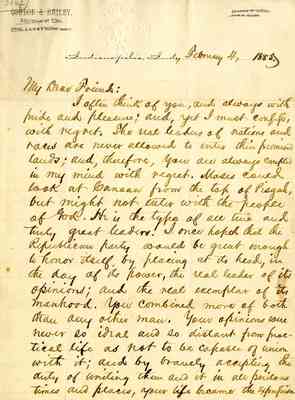 Indianapolis, Indy, February 4, 1885
My Dear Friend:
I often think of you, and always with
pride and pleasure; and, yet I must confess,
with regret. The real leaders of nations and
races are never allowed to enter the promised
lands; and, therefore, you are always coupled
in my mind with regret. Moses could
look at Canaan from the top of Pisgah,
but might not enter with the people
of God. He is the type of all true and
truly great leaders. I once hoped that the
Republican party would be great enough
to honor itself by placing at its head, in
the day of its power, the real leader of its
opinions; and the real exemplar of its
manhood. You combined more of both
than any other man. Your opinions were
never so ideal and so distant from prac-
tical life as not to be capable of union
with it; and by bravely accepting the
duty of uniting them and it in all
times and places, your life became the